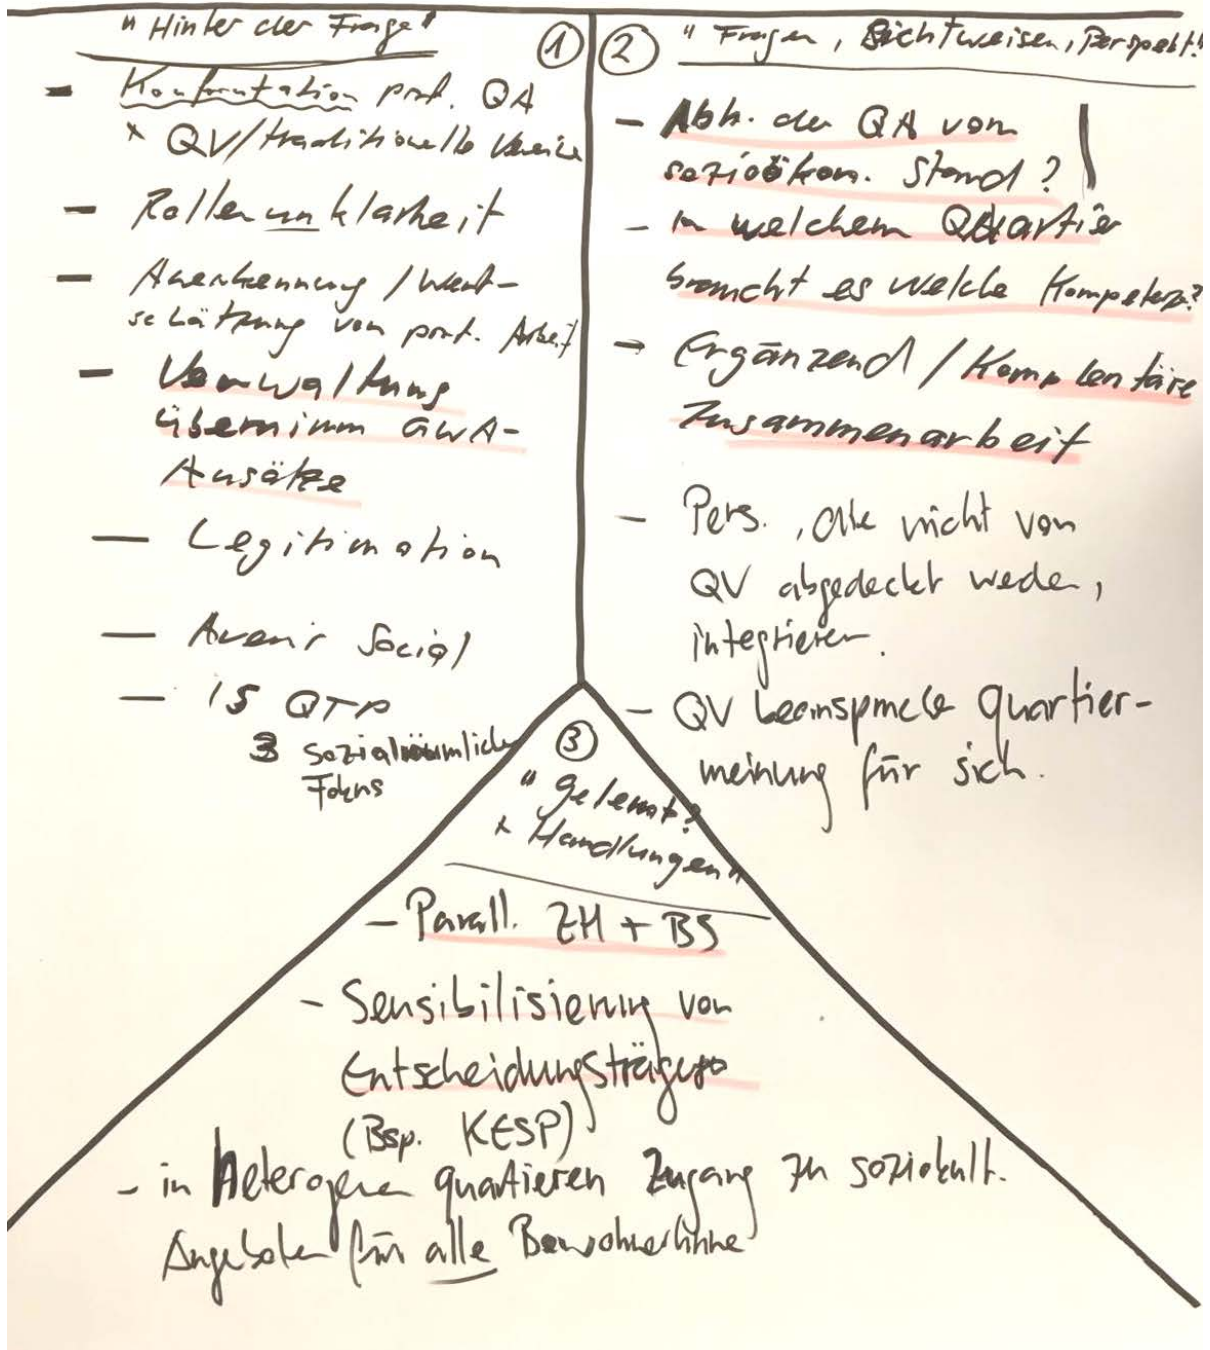 "Hinter der Frage"
①
- Konfrontation prof. QA
+ QV/traditionelle Vereine
- Rollenunklarheit
- Anerkennung / Wert-
schätzung von prof. Arbeit
- Verwaltung
übernimm GWA-
Ansätze
- Legitimation
- Avenir Social
- IS QTP
sozialräumlich
Fokus
② "Fragen, Sichtweisen, Perspekt."
- Abh. der QA vom
sozioökon. Stand?
- In welchem Quartier
braucht es welche Kompetenz?
- Ergänzend / Komplentäre
Zusammenarbeit
- Pers., die nicht von
QV abgedeckt weden,
integrieren.
- QV beanspruch Quartier-
meinung für sich.
③
"Gelernt?
+ Handlungen"
- Parall. ZH + BS
- Sensibilisierung von
Entscheidungsträgern
(Bsp. KESP)
- in Heterogenen quartieren Zugang zu soziokult.
Angeboten für alle